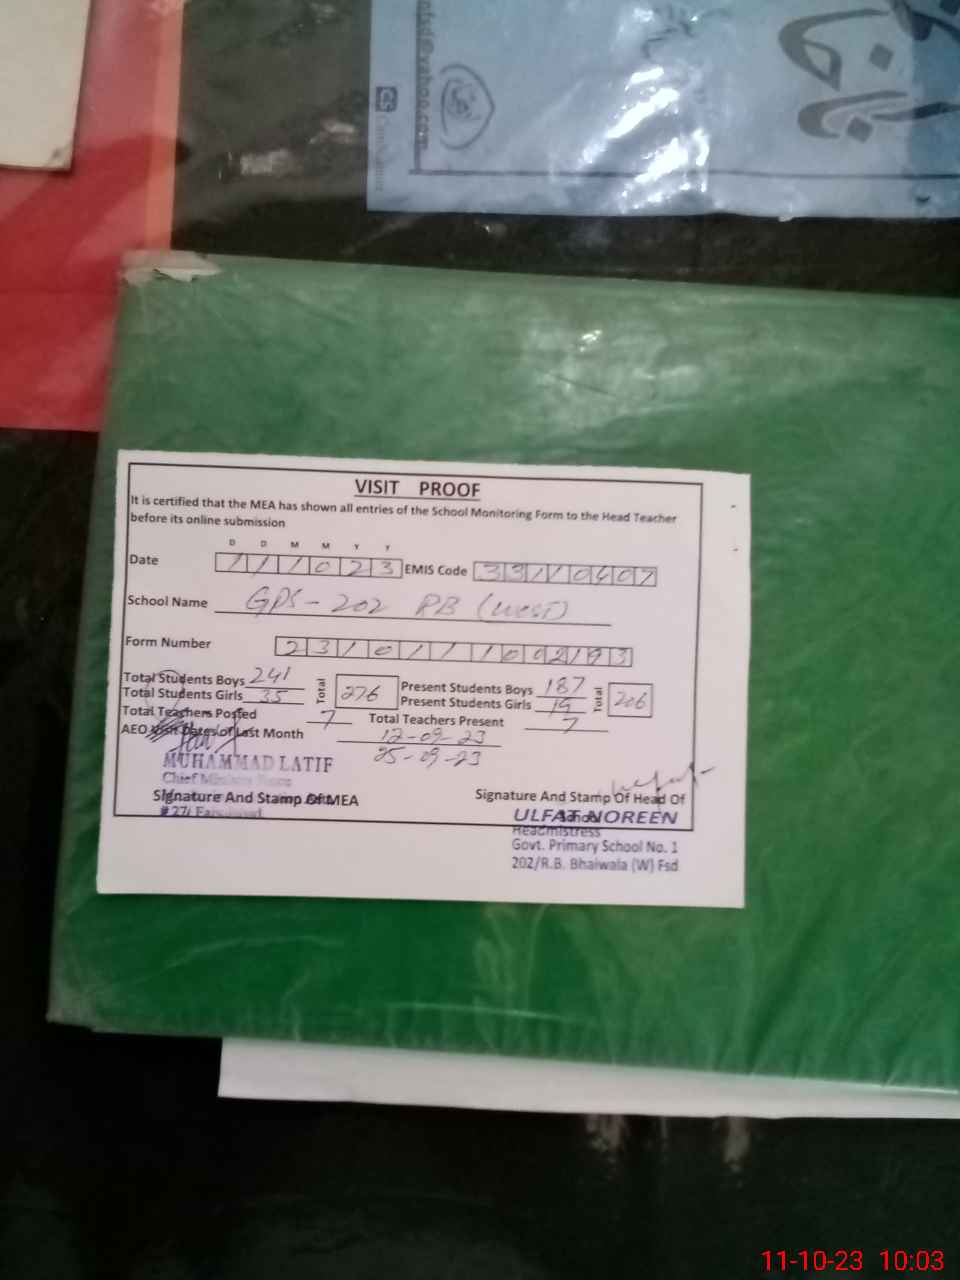 nfsd@yahoo.com
CS CamScanner
VISIT PROOF
It is certified that the MEA has shown all entries of the School Monitoring Form to the Head Teacher
before its online submission
D D M M Y Y
Date 111023 EMIS Code 33110407
School Name GPS-202 RB (west)
Form Number 2310111002193
Total Students Boys 241 Total 276 Present Students Boys 187 Total 206
Total Students Girls 35 Present Students Girls 19
Total Teachers Posted 7 Total Teachers Present 7
AEO Visit Dates of Last Month 12-09-23
25-09-23
MUHAMMAD LATIF
Chief
Signature And Stamp Of MEA Signature And Stamp Of Head Of
School
#27/
ULFAT NOREEN
Headmistress
Govt. Primary School No. 1
202/R.B. Bhaiwala (W) Fsd
11-10-23 10:03